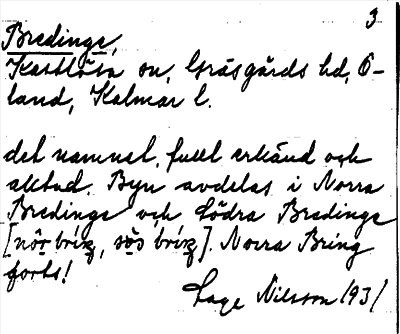 3
Bredinge,
Kastlösa sn, Gräsgårds hd, Ö-
land, Kalmar l.
del namnet, fullt erkänd och
aktad. Byn avdelas i Norra
Bredinge och Södra Bredinge
Norra Bring
forts!
Lage Nilsson 1931